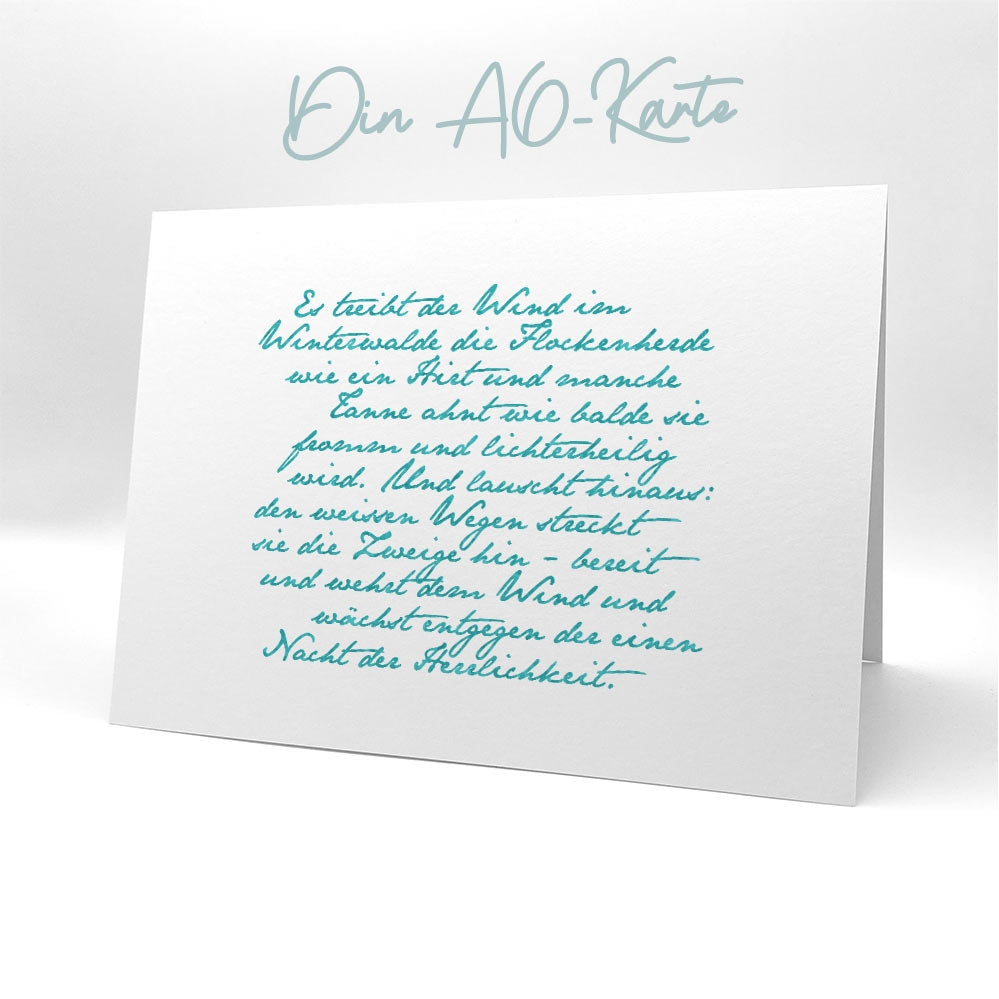 Din A6-Karte
Es treibt der Wind im
Winterwalde die Flockenherde
wie ein Hirt und manche
Tanne ahnt wie balde sie
fromm und lichterheilig
wird. Und lauscht hinaus:
den weissen Wegen streckt
sie die Zweige hin – bereit
und wehrt dem Wind und
wächst entgegen der einen
Nacht der Herrlichkeit.